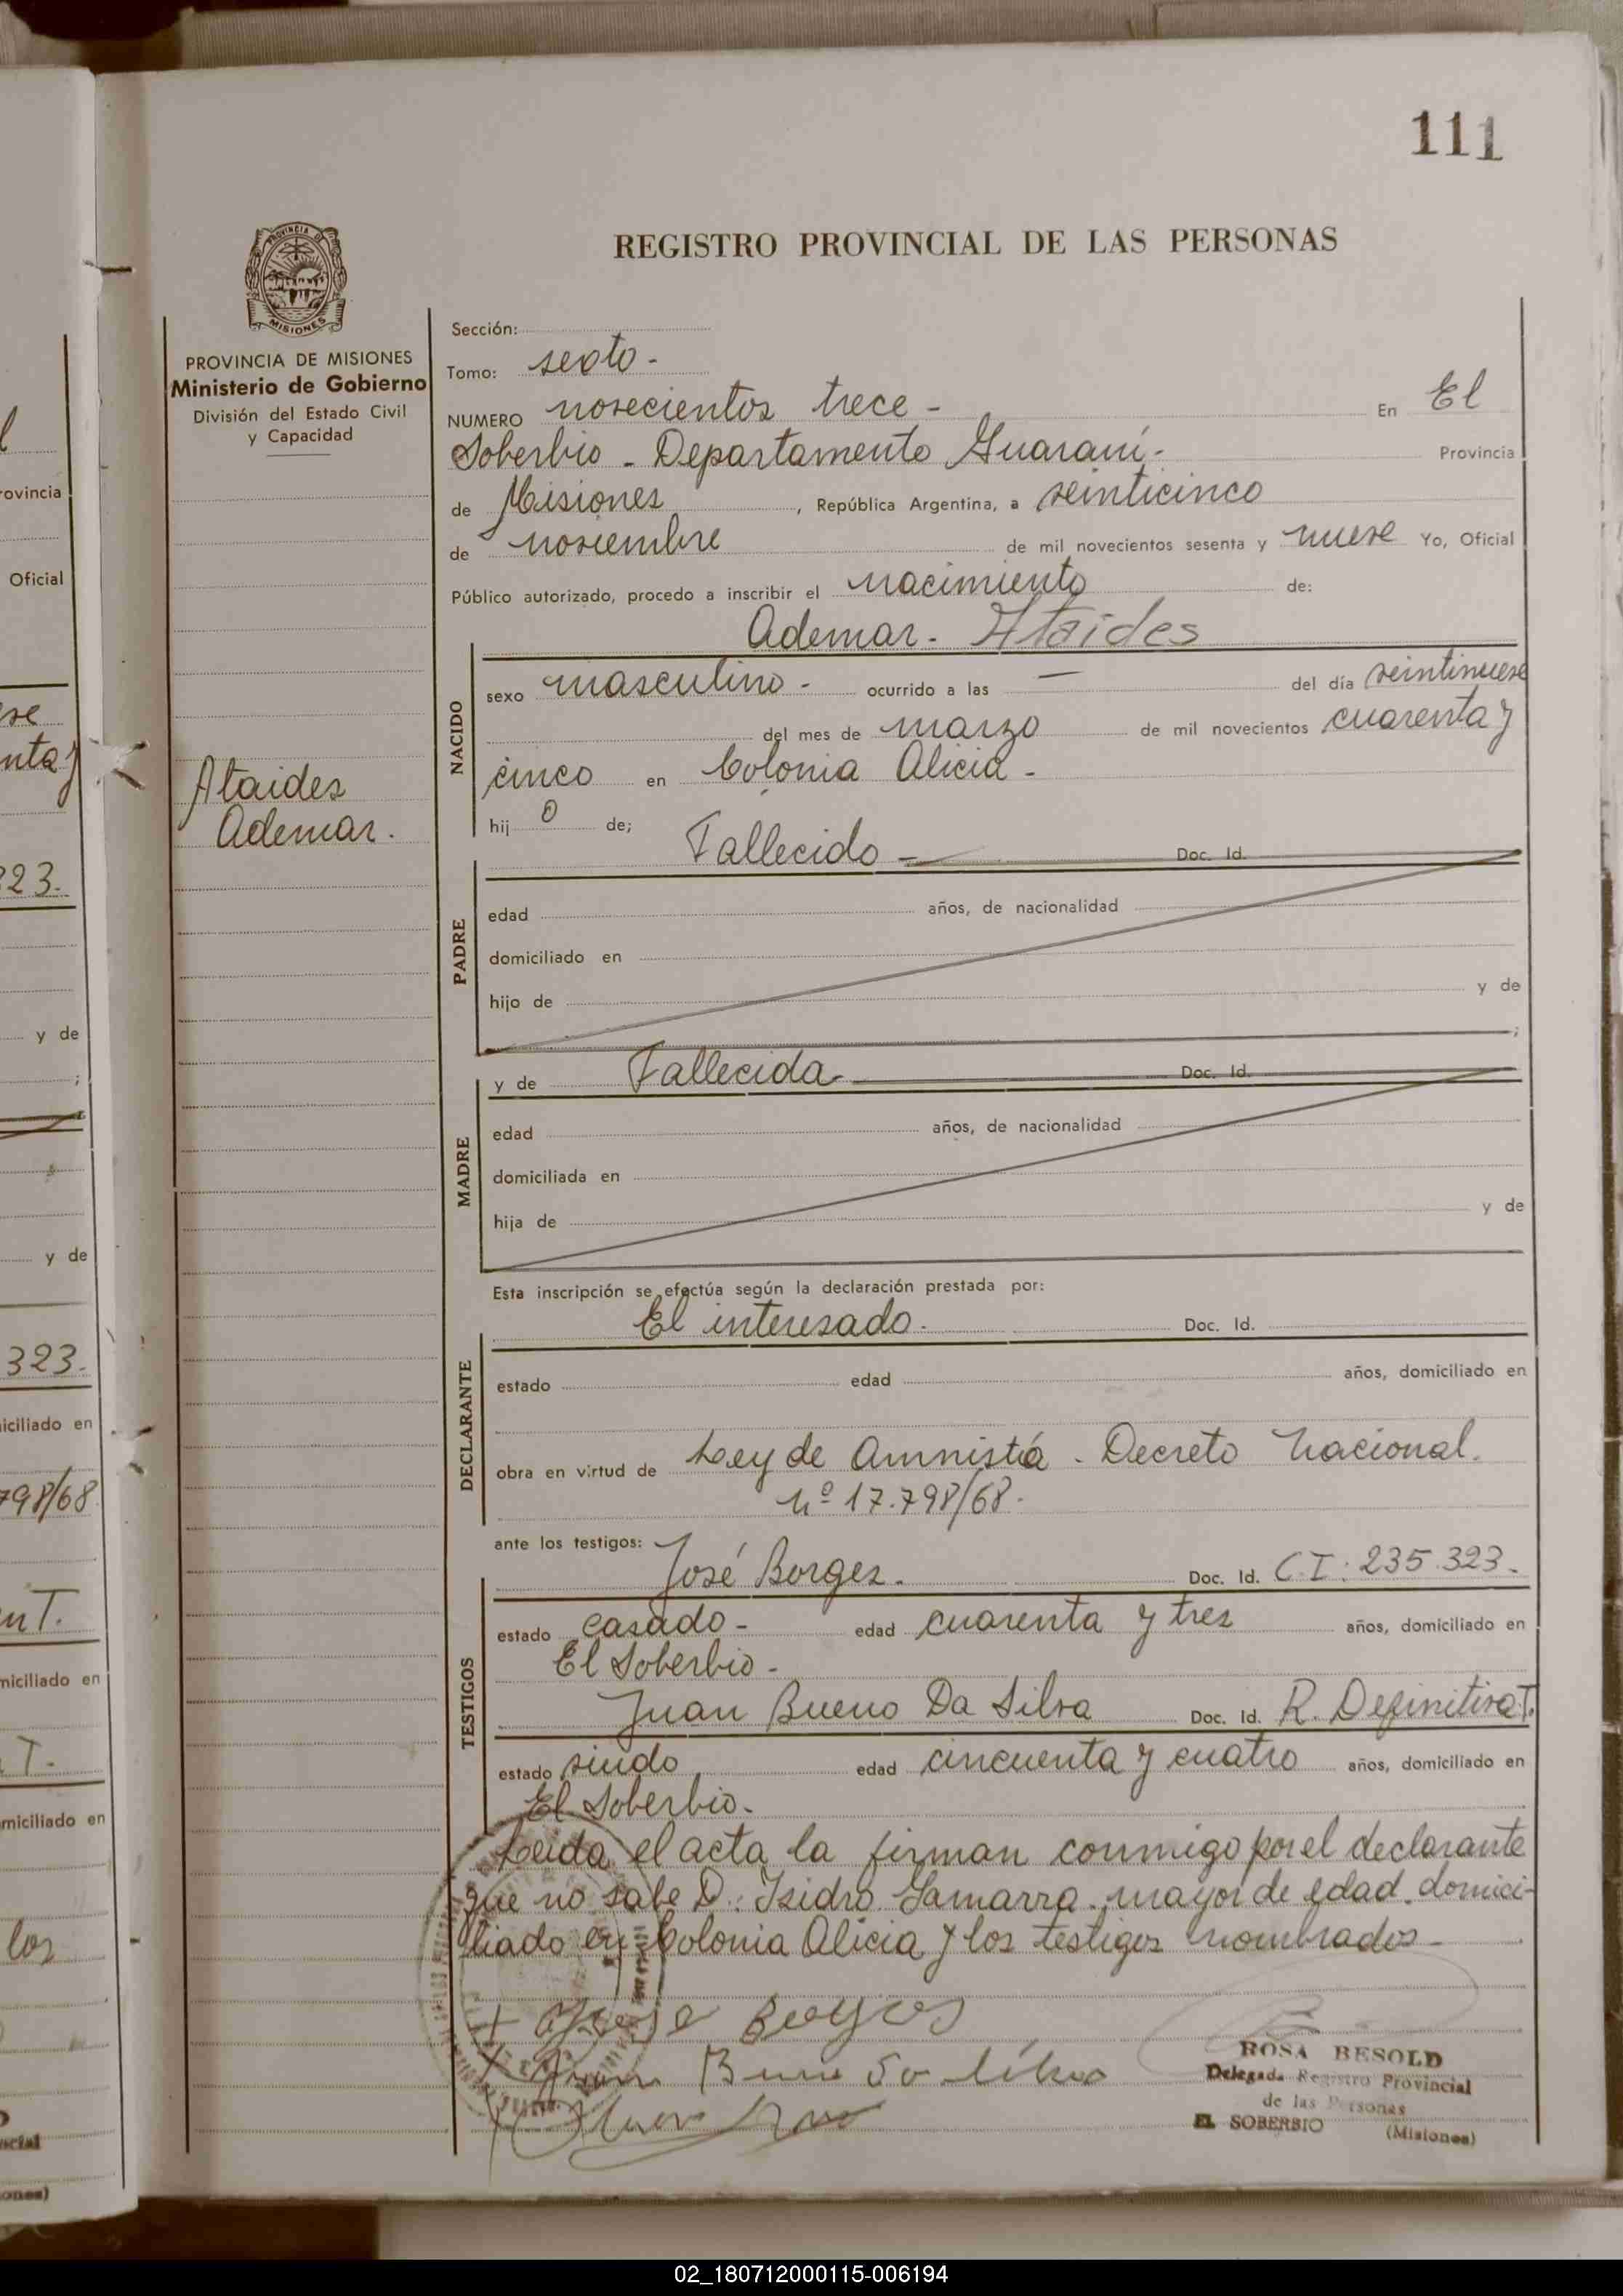 111
REGISTRO PROVINCIAL DE LAS PERSONAS
PROVINCIA DE
MISIONES
PROVINCIA DE MISIONES
Ministerio de Gobierno
División del Estado Civil
y Capacidad
Ataides
Ademar.
Sección:
Tomo: sexto -
NUMERO novecientos trece - En El
Soberbio - Departamento Guaraní - Provincia
de Misiones, República Argentina, a veinticinco
de noviembre de mil novecientos sesenta y nueve Yo, Oficial
Público autorizado, procedo a inscribir el nacimiento de:
Ademar - Ataides
NACIDO
sexo masculino - ocurrido a las — del día veintinueve
del mes de marzo de mil novecientos cuarenta y
cinco en Colonia Alicia -
hij o de;
PADRE
Fallecido - Doc. Id.
edad años, de nacionalidad
domiciliado en
hijo de y de
;
MADRE
y de Fallecida Doc. Id.
edad años, de nacionalidad
domiciliada en
hija de y de
Esta inscripción se efectúa según la declaración prestada por:
DECLARANTE
El interesado. Doc. Id.
estado edad años, domiciliado en
obra en virtud de Ley de Amnistía - Decreto Nacional.
nº 17.798/68.
ante los testigos:
TESTIGOS
José Borges. Doc. Id. C.I: 235.323.
estado casado - edad cuarenta y tres años, domiciliado en
El Soberbio -
Juan Bueno Da Silva Doc. Id. R. Definitiva T.
estado viudo edad cincuenta y cuatro años, domiciliado en
El Soberbio.
Leida el acta la firman conmigo por el declarante
que no sabe D: Isidro Gamarra mayor de edad domici-
liado en Colonia Alicia y los testigos nombrados -
ROSA BESOLD
Delegada Registro Provincial
de las Personas
EL SOBERBIO (Misiones)
l
rovincia
Oficial
ve
nta y
323.
y de
;
y de
323.
iciliado en
798/68.
n T.
miciliado en
T.
miciliado en
los
ncial
ones)
02_180712000115-006194